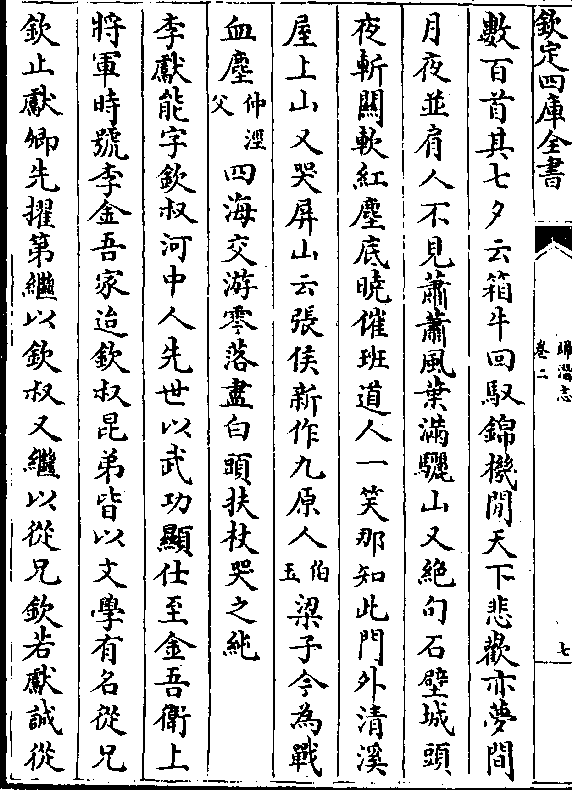 欽定四庫全書
歸潛志
卷二
七
數百首其七夕云箱牛回馭錦機閒天下悲歡亦夢間
月夜並肩人不見蕭蕭風葉滿驪山又絶句石壁城頭
夜斬關軟紅塵底曉催班道人一笑那知此門外清溪
屋上山又哭屏山云張侯新作九原人伯玉梁子今為戰
血塵仲涇父四海交游零落盡白頭扶杖哭之純
李獻能字欽叔河中人先世以武功顯仕至金吾衛上
將軍時號李金吾家迨欽叔昆弟皆以文學有名從兄
欽止獻卿先擢第繼以欽叔又繼以從兄欽若獻誠從